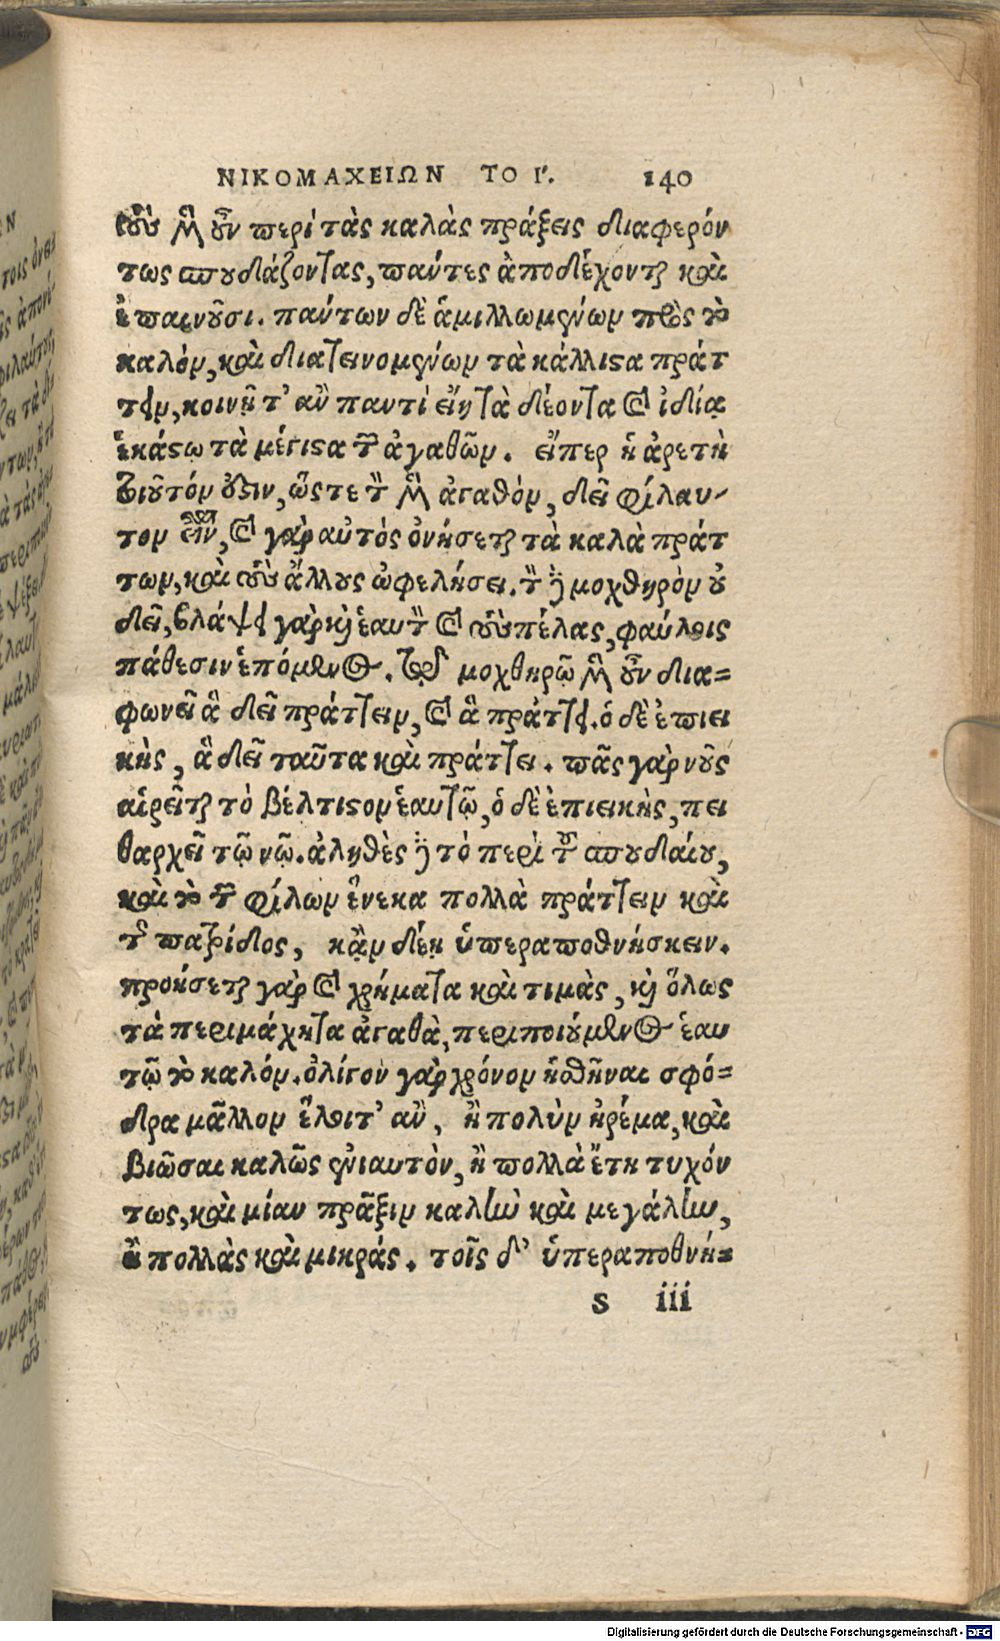 ΝΙΚΟΜΑΧΕΙΩΝ ΤΟ Ι. 140
τοὺς μὲν οὖν περὶ τὰς καλὰς πράξεις διαφερόν
τως σπουδάζοντας, πάντες ἀποδέχονται καὶ
ἐπαινοῦσι. πάντων δὲ ἁμιλλωμένων πρὸς τὸ
καλὸν, καὶ διατεινομένων τὰ κάλλιστα πράτ
τειν, κοινῇ τ' ἂν παντὶ εἴη τὰ δέοντα καὶ ἰδίᾳ
ἑκάστῳ τὰ μέγιστα τῶν ἀγαθῶν. εἴπερ ἡ ἀρετὴ
τοιοῦτόν ἐστιν, ὥστε τὸν μὲν ἀγαθὸν, δεῖ φίλαυ-
τον εἶναι, καὶ γὰρ αὐτὸς ὀνήσεται τὰ καλὰ πράτ
των, καὶ τοὺς ἄλλους ὠφελήσει. τὸν δὲ μοχθηρὸν οὐ
δεῖ, βλάψει γὰρ καὶ ἑαυτὸν καὶ τοὺς πέλας, φαύλοις
πάθεσιν ἑπόμενος. τῷ μοχθηρῷ μὲν οὖν δια=
φωνεῖ ἃ δεῖ πράττειν, καὶ ἃ πράττει. ὁ δὲ ἐπιει
κὴς, ἃ δεῖ ταῦτα καὶ πράττει. πᾶς γὰρ νοῦς
αἱρεῖται τὸ βέλτιστον ἑαυτῷ, ὁ δὲ ἐπιεικὴς, πει
θαρχεῖ τῷ νῷ. ἀληθὲς δὲ τὸ περὶ τοῦ σπουδαίου,
καὶ τὸ τῶν φίλων ἕνεκα πολλὰ πράττειν καὶ
τῆς πατρίδος, κἂν δέῃ ὑπεραποθνήσκειν.
προήσεται γὰρ καὶ χρήματα καὶ τιμὰς, καὶ ὅλως
τὰ περιμάχητα ἀγαθὰ, περιποιούμενος ἑαυ
τῷ τὸ καλόν. ὀλίγον γὰρ χρόνον ἡσθῆναι σφό=
δρα μᾶλλον ἕλοιτ' ἂν, ἢ πολὺν ἠρέμα, καὶ
βιῶσαι καλῶς ἐνιαυτὸν, ἢ πολλὰ ἔτη τυχόν
τως, καὶ μίαν πρᾶξιν καλὴν καὶ μεγάλην,
ἢ πολλὰς καὶ μικράς. τοῖς δ' ὑπεραποθνή=
s iii
Digitalisierung gefördert durch die Deutsche Forschungsgemeinschaft - DFG